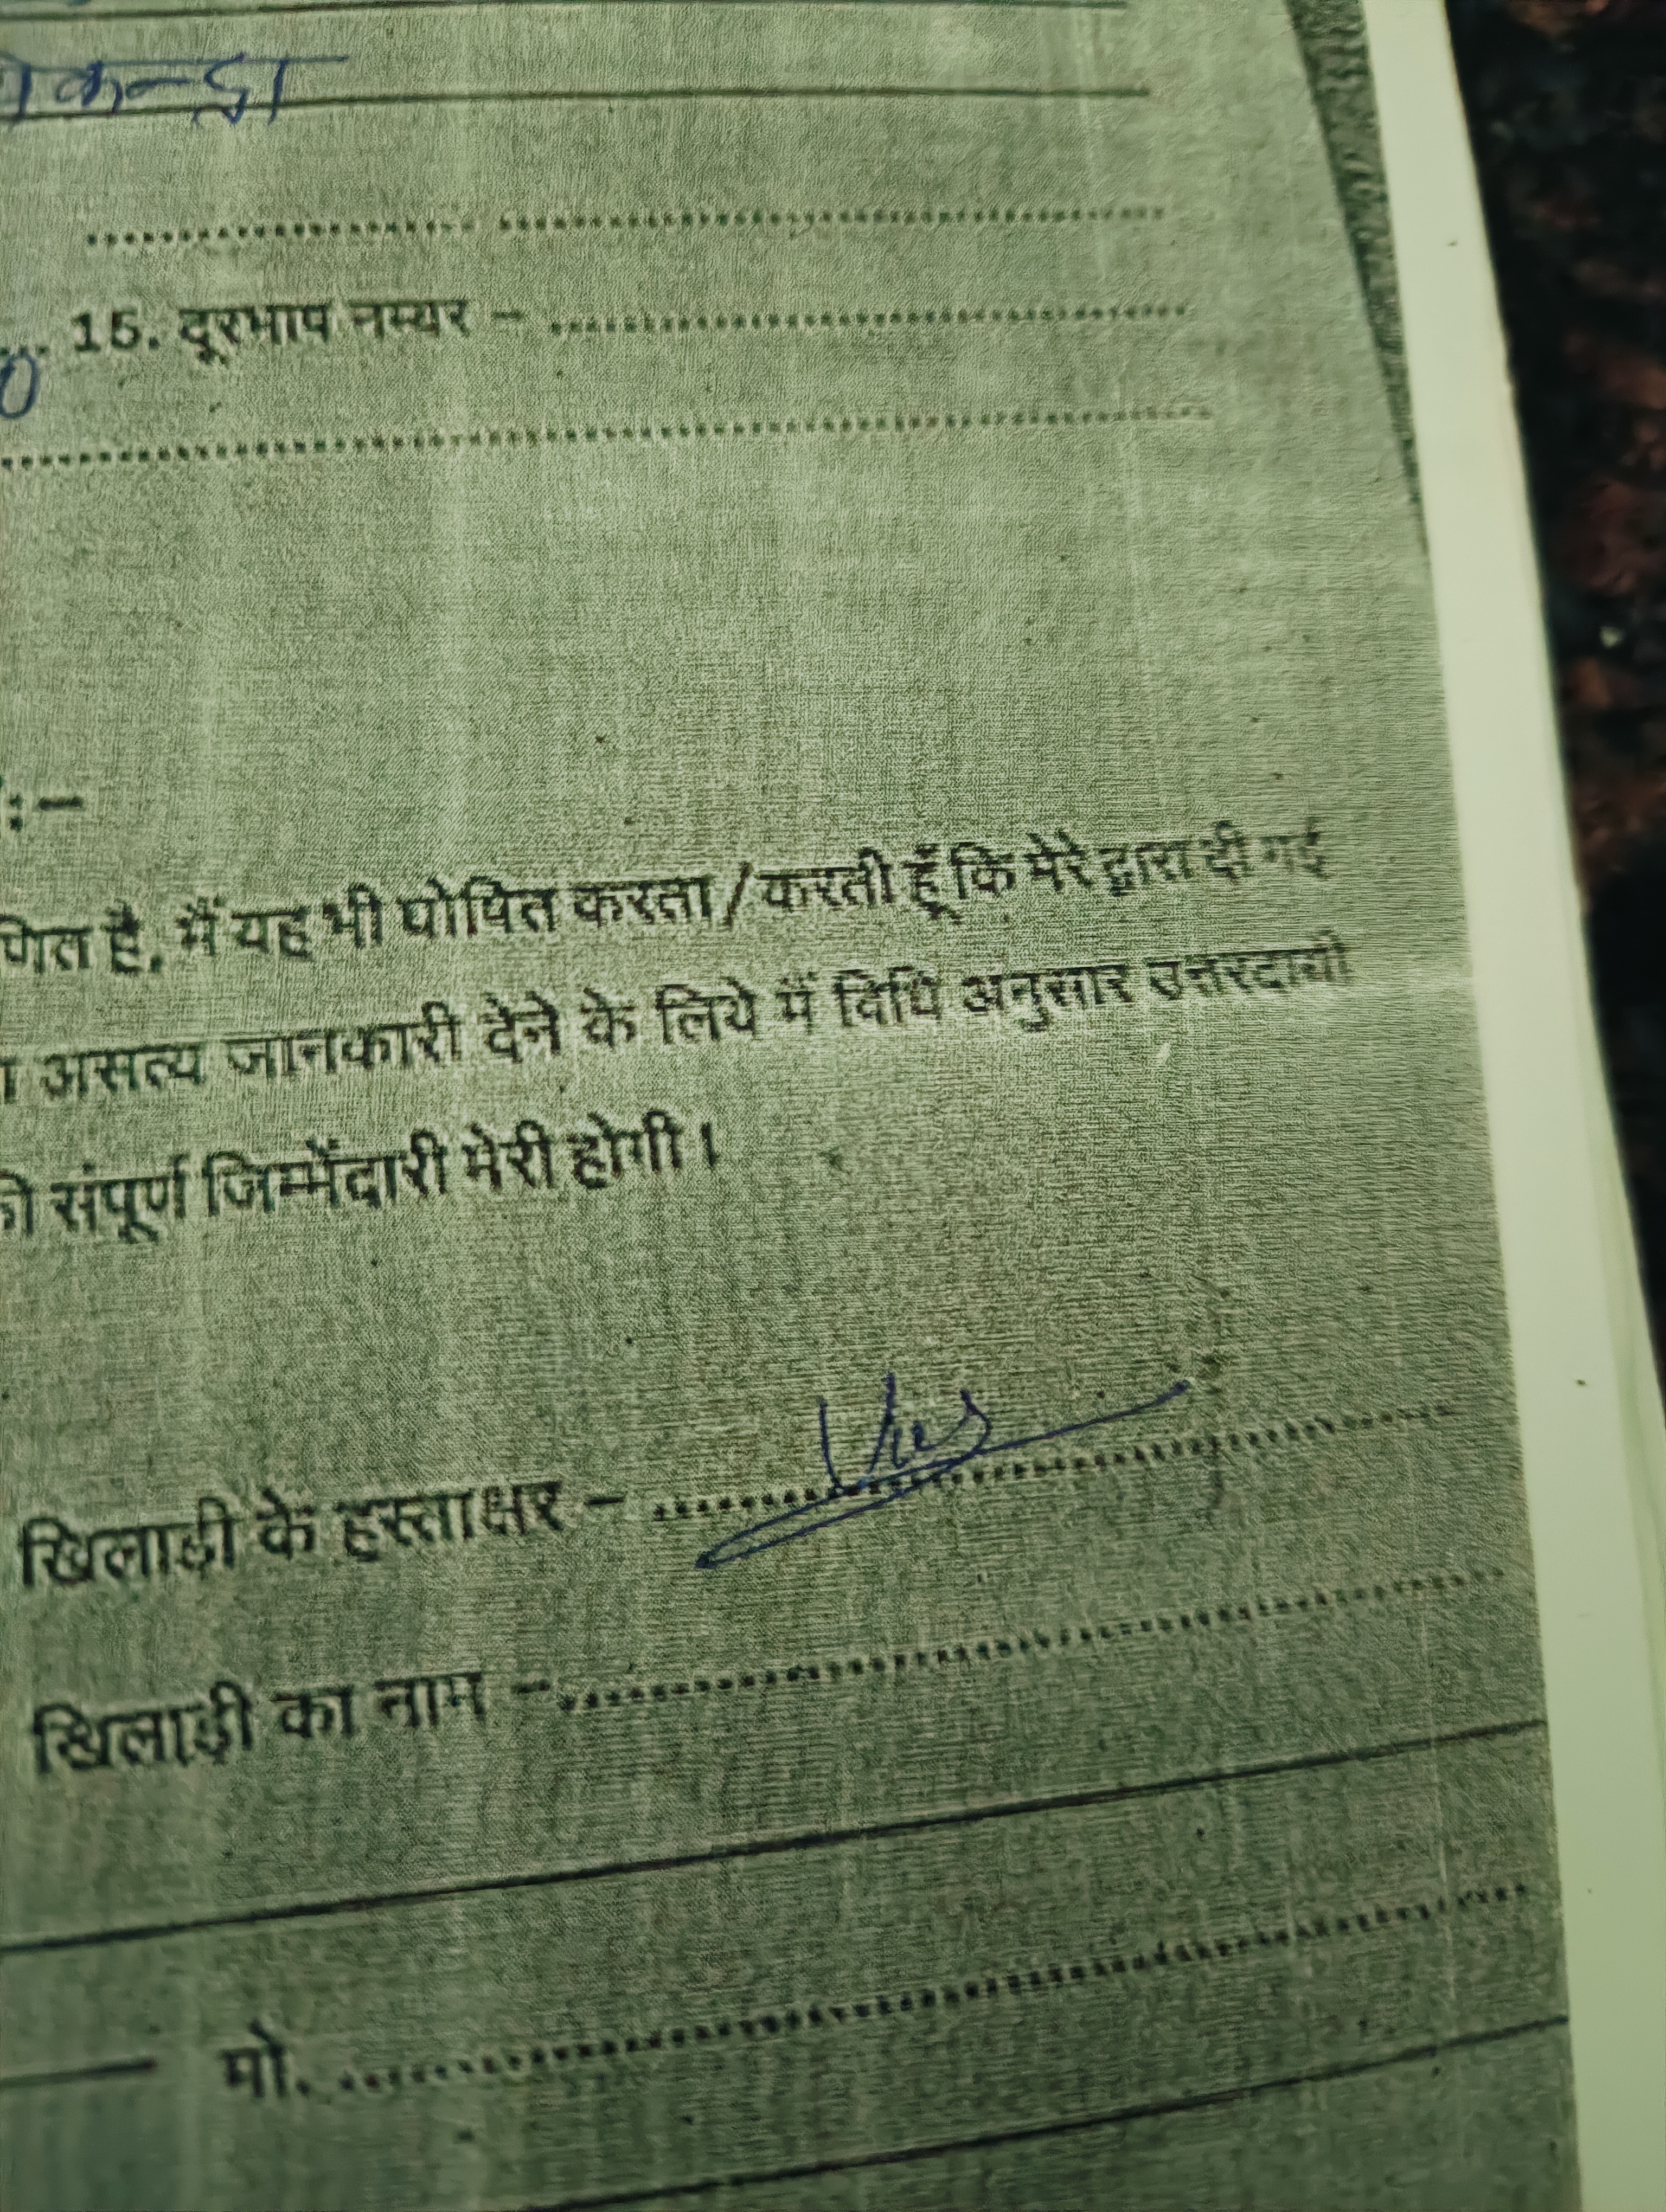 15. दूरभाष नम्बर –
0
:–
णित है, मैं यह भी घोषित करता/करती हूँ कि मेरे द्वारा दी गई
ा असत्य जानकारी देने के लिये मैं विधि अनुसार उत्तरदायी
की संपूर्ण जिम्मेंदारी मेरी होगी।
खिलाड़ी के हस्ताक्षर –
खिलाड़ी का नाम –
मो.